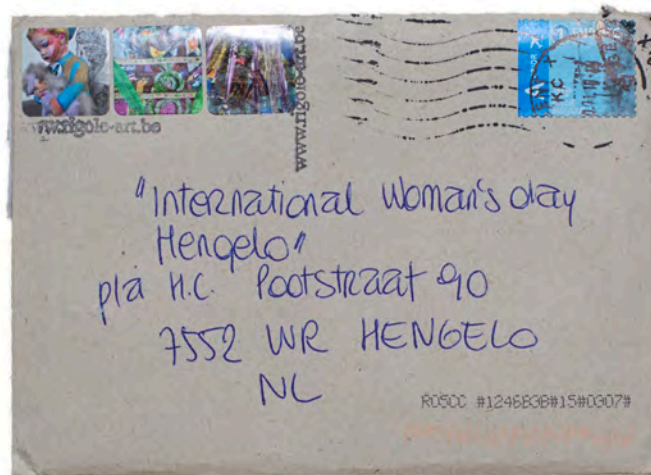 www.rigolo-art.be
www.rigolo-art.be
"International Woman's day
Hengelo"
p/a H.C. Pootstraat 90
7552 WR HENGELO
NL